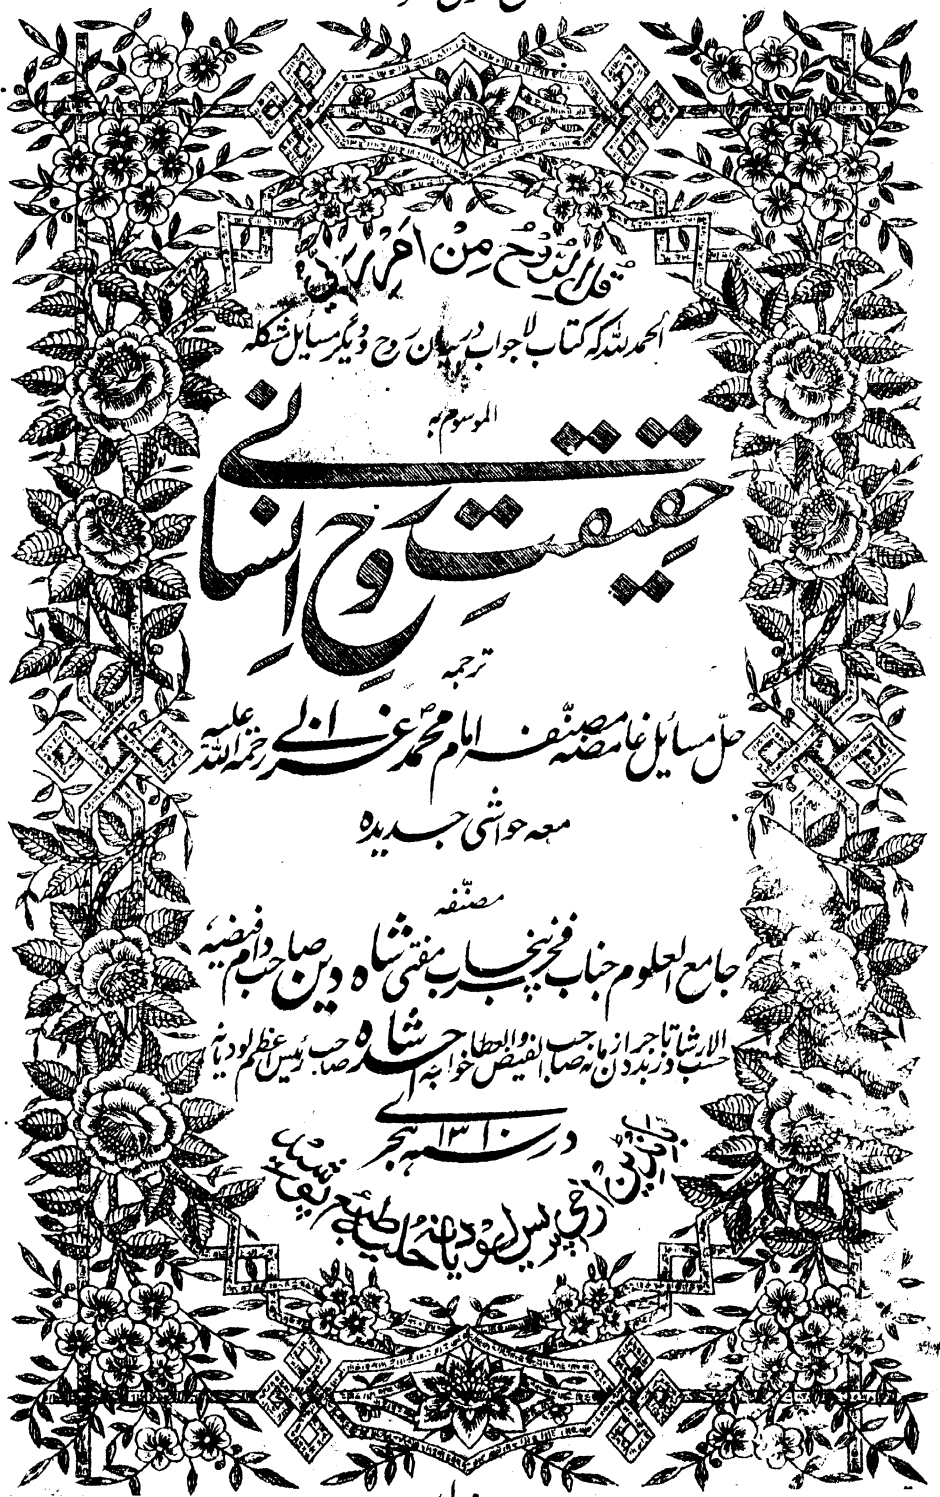 قُلِ الرُّوْحُ مِنْ اَمْرِ رَبِّیْ
الحمد للہ کہ کتاب لاجواب در بیان روح و دیگر مسائل مشکلہ
الموسوم بہ
حقیقت روح انسانی
ترجمہ
حل مسائل غامضہ مصنّفہ امام محمد غزالی رحمۃ اللہ علیہ
معہ حواشی جدیدہ
مصنّفہ
جامع العلوم جناب فخر پنجاب مفتی شاہ دین صاحب دام فیضہ
حسب الارشاد تاجر صاحب الفیض والعطا خواجہ احمد شاہ صاحب رئیس اعظم لودیانہ
در سنہ ۱۳۱۰ ہجری
پریس لودیانہ طبع پوشید